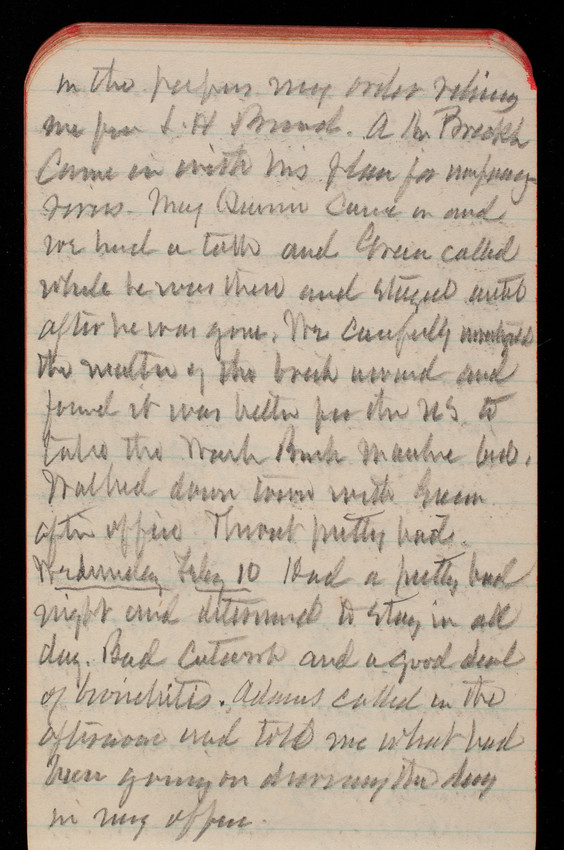 in the papers my order relieving
me from L. H. Brand. A Mr Breckh
Came in with his plan for
rivers. Maj Quinn came in and
we had a talk and Green called
while he was there and stayed until
after he was gone. We carefully
the matter of the brick award and
found it was better for the U.S. to
take the Wash Brick Machine bid.
Walked down town with Green
after office. Throat pretty bad.
Wednesday Feby 10 Had a pretty bad
night and determined to stay in all
day. Bad Catarrh and a good deal
of bronchitis. Adams called in the
afternoon and told me what had
been going on during the day
in my office.